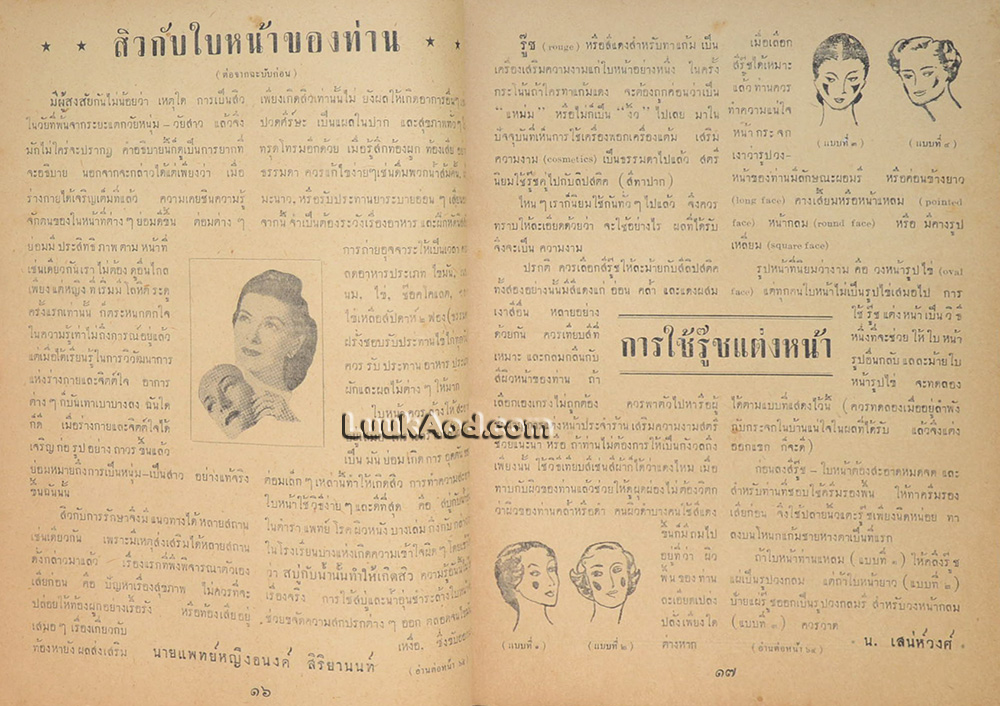 สิวกับใบหน้าของท่าน
(ต่อจากฉะบับก่อน)
มีผู้สงสัยกันไม่น้อยว่า เหตุใด การเป็นสิว
ในวัยที่พ้นจากระยะแตกวัยหนุ่ม – วัยสาว แล้วจึง
มักไม่ใคร่จะปรากฎ คำอธิบายนั้นก็ดูเป็นการยากที่
จะอธิบาย นอกจากจะกล่าวได้แต่เพียงว่า เมื่อ
ร่างกายได้เจริญเต็มที่แล้ว ความเคยชินความรู้
จักตนของในหน้าที่ต่าง ๆ ย่อมดีขึ้น ต่อมต่าง ๆ
ย่อมมีประสิทธิภาพตามหน้าที่
เช่นเดียวกันเรา ไม่ต้องดูอื่นไกล
เพียงแต่หญิงที่เริ่มมีโลหิตระดู
ครั้งแรกเท่านั้น ก็ตระหนกตกใจ
ในความรู้เท่าไม่ถึงการณ์อยู่แล้ว
แต่เมื่อได้เรียนรู้ในการวิวัฒนาการ
แห่งร่างกายและจิตต์ใจ อาการ
ต่าง ๆ ก็บันเทาเบาบางลง ฉันใด
ก็ดี เมื่อร่างกายและจิตต์ใจได้
เจริญก่อรูปอย่างถาวรขึ้นแล้ว
ย่อมหมายถึงการเป็นหนุ่ม–เป็นสาว อย่างแท้จริง
ขึ้นฉันนั้น
สิวกับการรักษาจึงมีแนวทางได้หลายสถาน
เช่นเดียวกัน เพราะมีเหตุส่งเสริมได้หลายสถาน
ดังกล่าวมาแล้ว เรื่องแรกที่พึงพจารณาตัวเอง
เสียก่อน คือ ปัญหาเรื่องสุขภาพ ไม่ควรที่จะ
ปล่อยให้ท้องผูกอย่างเรื้อรัง หรือท้องเสียอยู่
เสมอ ๆ เรื่องเกี่ยวกับ
ท้องหายัง ผลส่งเสริม
เพียงเกิดสิวเท่านั้นไม่ ยังผลให้เกิดอาการอื่นๆ
ปวดศีร์ษะ เป็นแผลในปาก และสุขภาพทั่วๆ
ทรุดโทรมอีกด้วย เมื่อรู้สึกท้องผูก ท้องเสีย
ธรรมดา ควรแก้ไขง่ายๆเช่นดื่มพวกน้ำส้มคั้น,
มะนาว, หรือรับประทานยาระบายอ่อน ๆ
จากนี้ จำเป็นต้องระวังเรื่องอาหาร และฝึกหัด
การถ่ายอุจจาระให้เป็นเวลา
ลดอาหารประเภท ไขมัน,
นม, ไข่, ช็อคโคแลต,
ไข่เหลือสัปดาห์ ๒ ฟอง
ฝรั่งชอบรับประทานไข่
ควรรับประทานอาหาร
ผักและผลไม้ต่าง ๆ ให้มาก
ใบหน้าควรล้างให้สะอาด
เป็นมันย่อมเกิดการ
ต่อมเล็กๆ เหล่านี้ทำให้เกิดสิว การทำความสะอาด
ใบหน้าใช้วิธีง่าย ๆ และดีที่สุด คือ สบู่กับน้ำ
ในตำราแพทย์โรคผิวหนังบางเล่ม
ในโรงเรียนบางแห่งเกิดความเข้าใจผิดๆ
ว่า สบู่กับน้ำนั้นทำให้เกิดสิว
เรื่องจริง การใช้สบู่และน้ำอุ่นชำระล้าง
ช่วยขจัดความสกปรกต่าง ๆ ออก
เหงื่อ, ซึ่งขับออก
นายแพทย์หญิงอนงค์ สิริยานนท์
(อ่านต่อหน้า ๖๔)
๑๖
รู๊ช (rouge) หรือสีแดงสำหรับทาแก้ม เป็น
เครื่องเสริมความงามแก่ใบหน้าอย่างหนึ่ง ในครั้ง
กระโน้นถ้าใครทาแก้มแดง จะต้องถูกคอนว่าเป็น
“แหม่ม” หรือไม่ก็เป็น “งิ้ว” ไปเลย มาใน
ปัจจุบันที่เห็นการใช้เครื่องพอกเครื่องแต้ม เสริม
ความงาม (cosmetics) เป็นธรรมดาไปแล้ว สตรี
นิยมใช้รู๊ชคู่ไปกับลิปสติค (สีทาปาก)
ไหน ๆ เราก็นิยมใช้กันทั่วๆ ไปแล้ว จึงควร
ทราบให้ละเอียดด้วยว่า จะใช้อย่างไร ผลที่ได้รับ
จึงจะเป็นความงาม
ปรกติ ควรเลือกสีรู๊ชให้ละม้ายกับสีลิปสติค
ทั้งสองอย่างนั้นมีสีแดงแก่ อ่อน คล้ำ และแดงผสม
เงาสีอื่น หลายอย่าง
ด้วยกัน ควรเทียบสีที่
เหมาะ และกลมกลืนกับ
สีผิวหน้าของท่าน ถ้า
เลือกเองเกรงไม่ถูกต้อง ควรพาตัวไปหารือผู้
หน้าประจำร้านเสริมความงามสตรี
ช่วยแนะนำ หรือ ถ้าท่านไม่ต้องการให้เป็นกังวลถึง
เพียงนั้น ใช้วิธีเทียบสีเช่นสีฝากก็ได้ว่าแดงไหม เมื่อ
ทาบกับผิวของท่านแล้วช่วยให้ดูผุดผ่องไม่ต้องวิตก
ว่าผิวของท่านคล้ำหรือดำ คนผิวดำบางคนใช้สีแดง
ขึ้นก็มีถมไป
อยู่ที่ว่า ผิว
พื้นของท่าน
ละเอียดเปล่ง
ปลั่งเพียงใด
ต่างหาก
(แบบที่ ๑)
(แบบที่ ๒)
การใช้รู๊ชแต่งหน้า
เมื่อเลือก
สีรู๊ชได้เหมาะ
แล้วท่านควร
ทำความแน่ใจ
หน้ากระจก
เงาว่ารูปวง-
หน้าของท่านมีลักษณะผอมรี หรือค่อนข้างยาว
(long face) คางเสี้ยมหรือหน้าแหลม (pointed
face) หน้ากลม (round face) หรือ มีคางรูป
เหลี่ยม (square face)
(แบบที่ ๓)
(แบบที่ ๔)
รูปหน้าที่นิยมว่างาม คือ วงหน้ารูปไข่ (oval
face) แต่ทุกคนใบหน้าไม่เป็นรูปไข่เสมอไป การ
ใช้รู๊ชแต่งหน้าเป็นวิธี
หนึ่งที่จะช่วยให้ใบหน้า
รูปอื่นกลับแลละม้ายใบ
หน้ารูปไข่ จะทดลอง
ได้ตามแบบที่แสดงไว้นี้ (ควรทดลองเมื่ออยู่ลำพัง
กับกระจกในบ้านแน่ใจในผลที่ได้รับ แล้วจึงแต่ง
ออกแขก ก็จะดี)
ก่อนลงสีรู๊ช – ใบหน้าต้องสะอาดหมดจด และ
สำหรับท่านที่ชอบใช้ครีมรองพื้น ให้ทาครีมรอง
เสียก่อน จึงใช้ปลายนิ้วแตะรู๊ชเพียงนิดหน่อย ทา
ลงบนโหนกแก้มชายหางตาเป็นที่แรก
ถ้าใบหน้าท่านแหลม (แบบที่ ๑) ให้คลึงรู๊ช
แผ่เป็นรูปวงกลม แต่ถ้าใบหน้ายาว (แบบที่ ๒)
ป้ายแผ่รู๊ชออกเป็นรูปวงกลมรี สำหรับวงหน้ากลม
(แบบที่ ๓) ควรวาด
น. เสน่ห์วงศ์
(อ่านต่อหน้า ๖๔)
๑๗
LuukAod.com